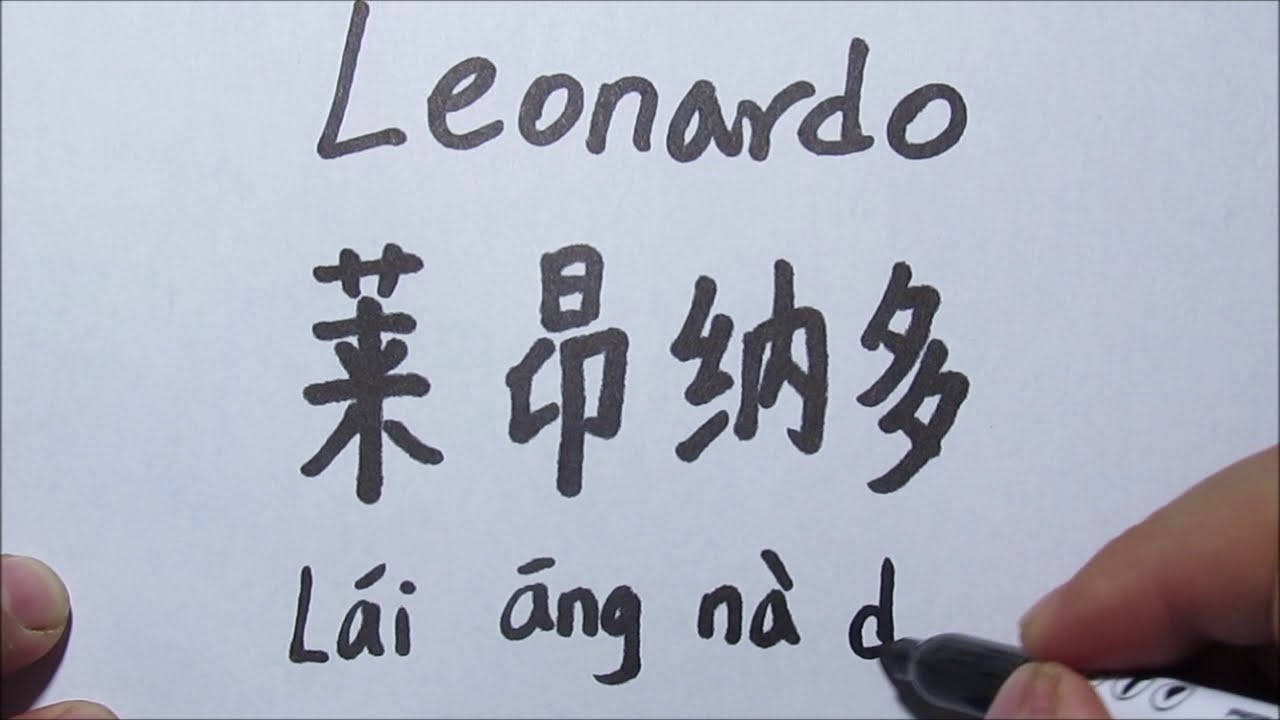 Leonardo
莱昂纳多
Lái áng nà d